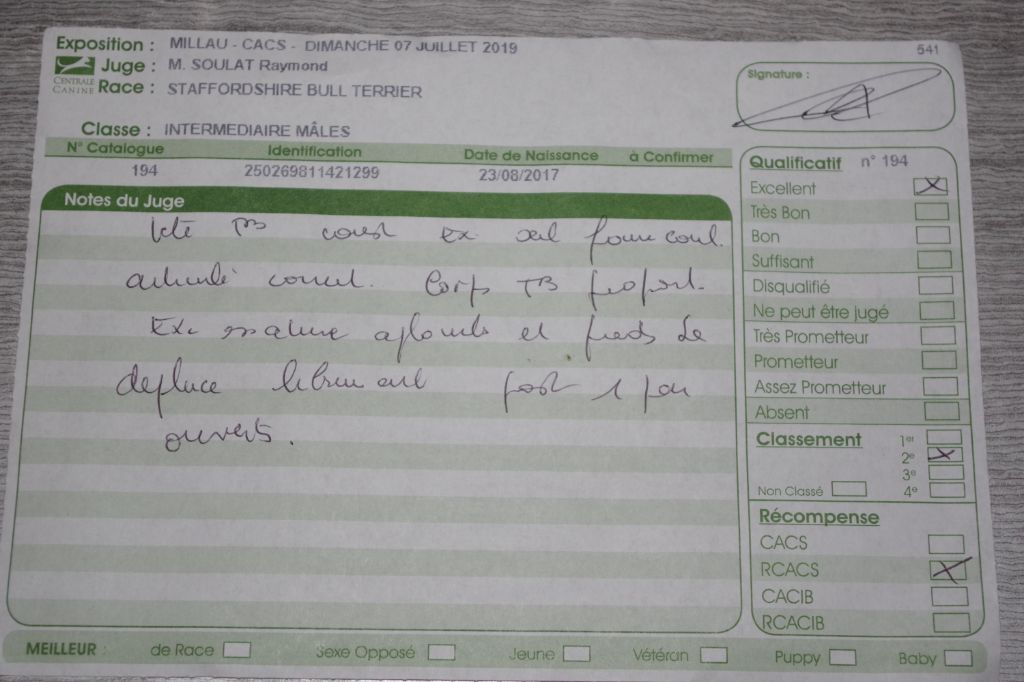 Exposition : MILLAU - CACS - DIMANCHE 07 JUILLET 2019
541
Juge : M. SOULAT Raymond
CENTRALE CANINE
Race : STAFFORDSHIRE BULL TERRIER
Signature :
Classe : INTERMEDIAIRE MÂLES
N° Catalogue Identification Date de Naissance à Confirmer
194 250269811421299 23/08/2017
Notes du Juge
TB Ex
Corps TB
Ex aplombs et pieds Se
deplace librement 1 peu
ouverts.
Qualificatif n° 194
Excellent X
Très Bon
Bon
Suffisant
Disqualifié
Ne peut être jugé
Très Prometteur
Prometteur
Assez Prometteur
Absent
Classement 1er
2e X
3e
Non Classé 4e
Récompense
CACS
RCACS X
CACIB
RCACIB
MEILLEUR : de Race Sexe Opposé Jeune Vétéran Puppy Baby